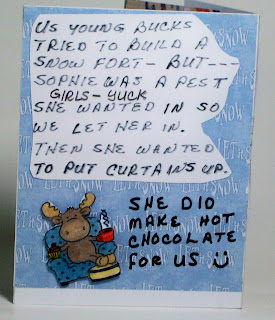 US YOUNG BUCKS
TRIED TO BUILD A
SNOW FORT - BUT---
SOPHIE WAS A PEST
GIRLS - YUCK
SHE WANTED IN SO
WE LET HER IN.
THEN SHE WANTED
TO PUT CURTAINS UP.
SHE DID
MAKE HOT
CHOCOLATE
FOR US